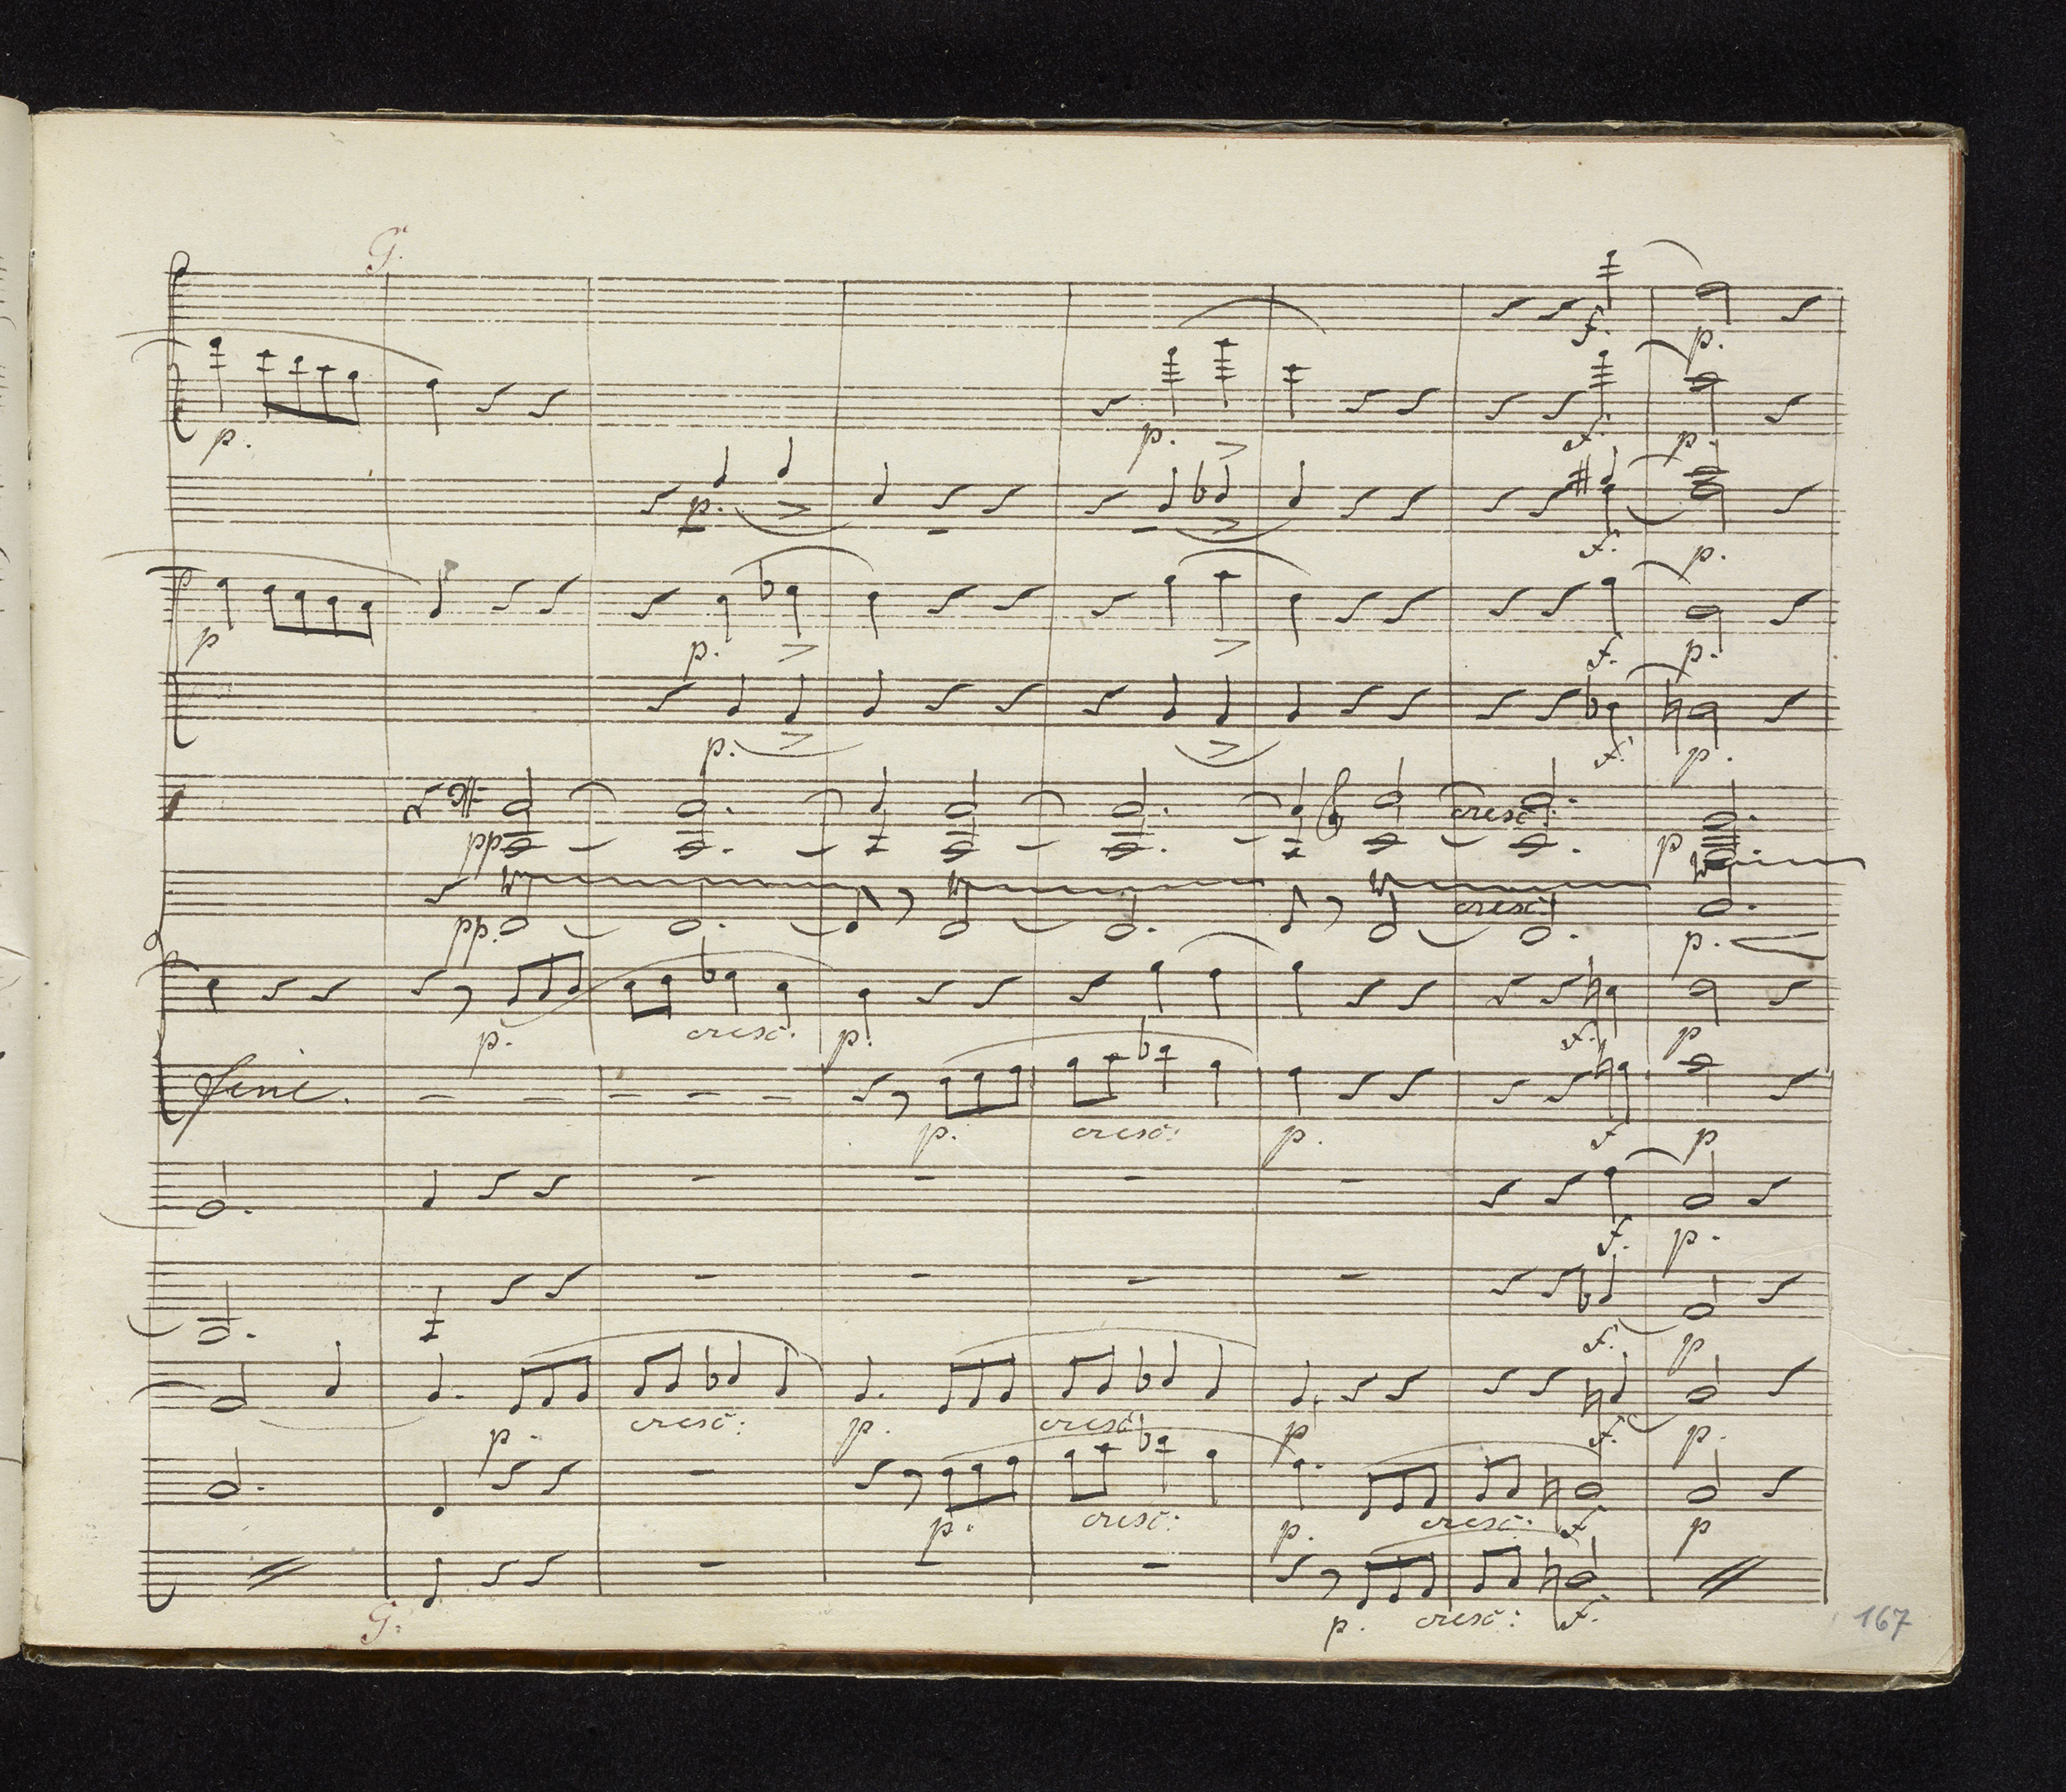 G.
f. p.
p. p. f. p.
p. f. p.
p p. f. p.
p. f. p.
pp cresc: p
pp. cresc: p.
p. cresc: p. f. p
Seni. p. cresc: p. f p
f. p.
f. p
p. cresc: p. cresc: p f. p.
p. cresc: p. cresc: f p
p. cresc: f.
G:
167